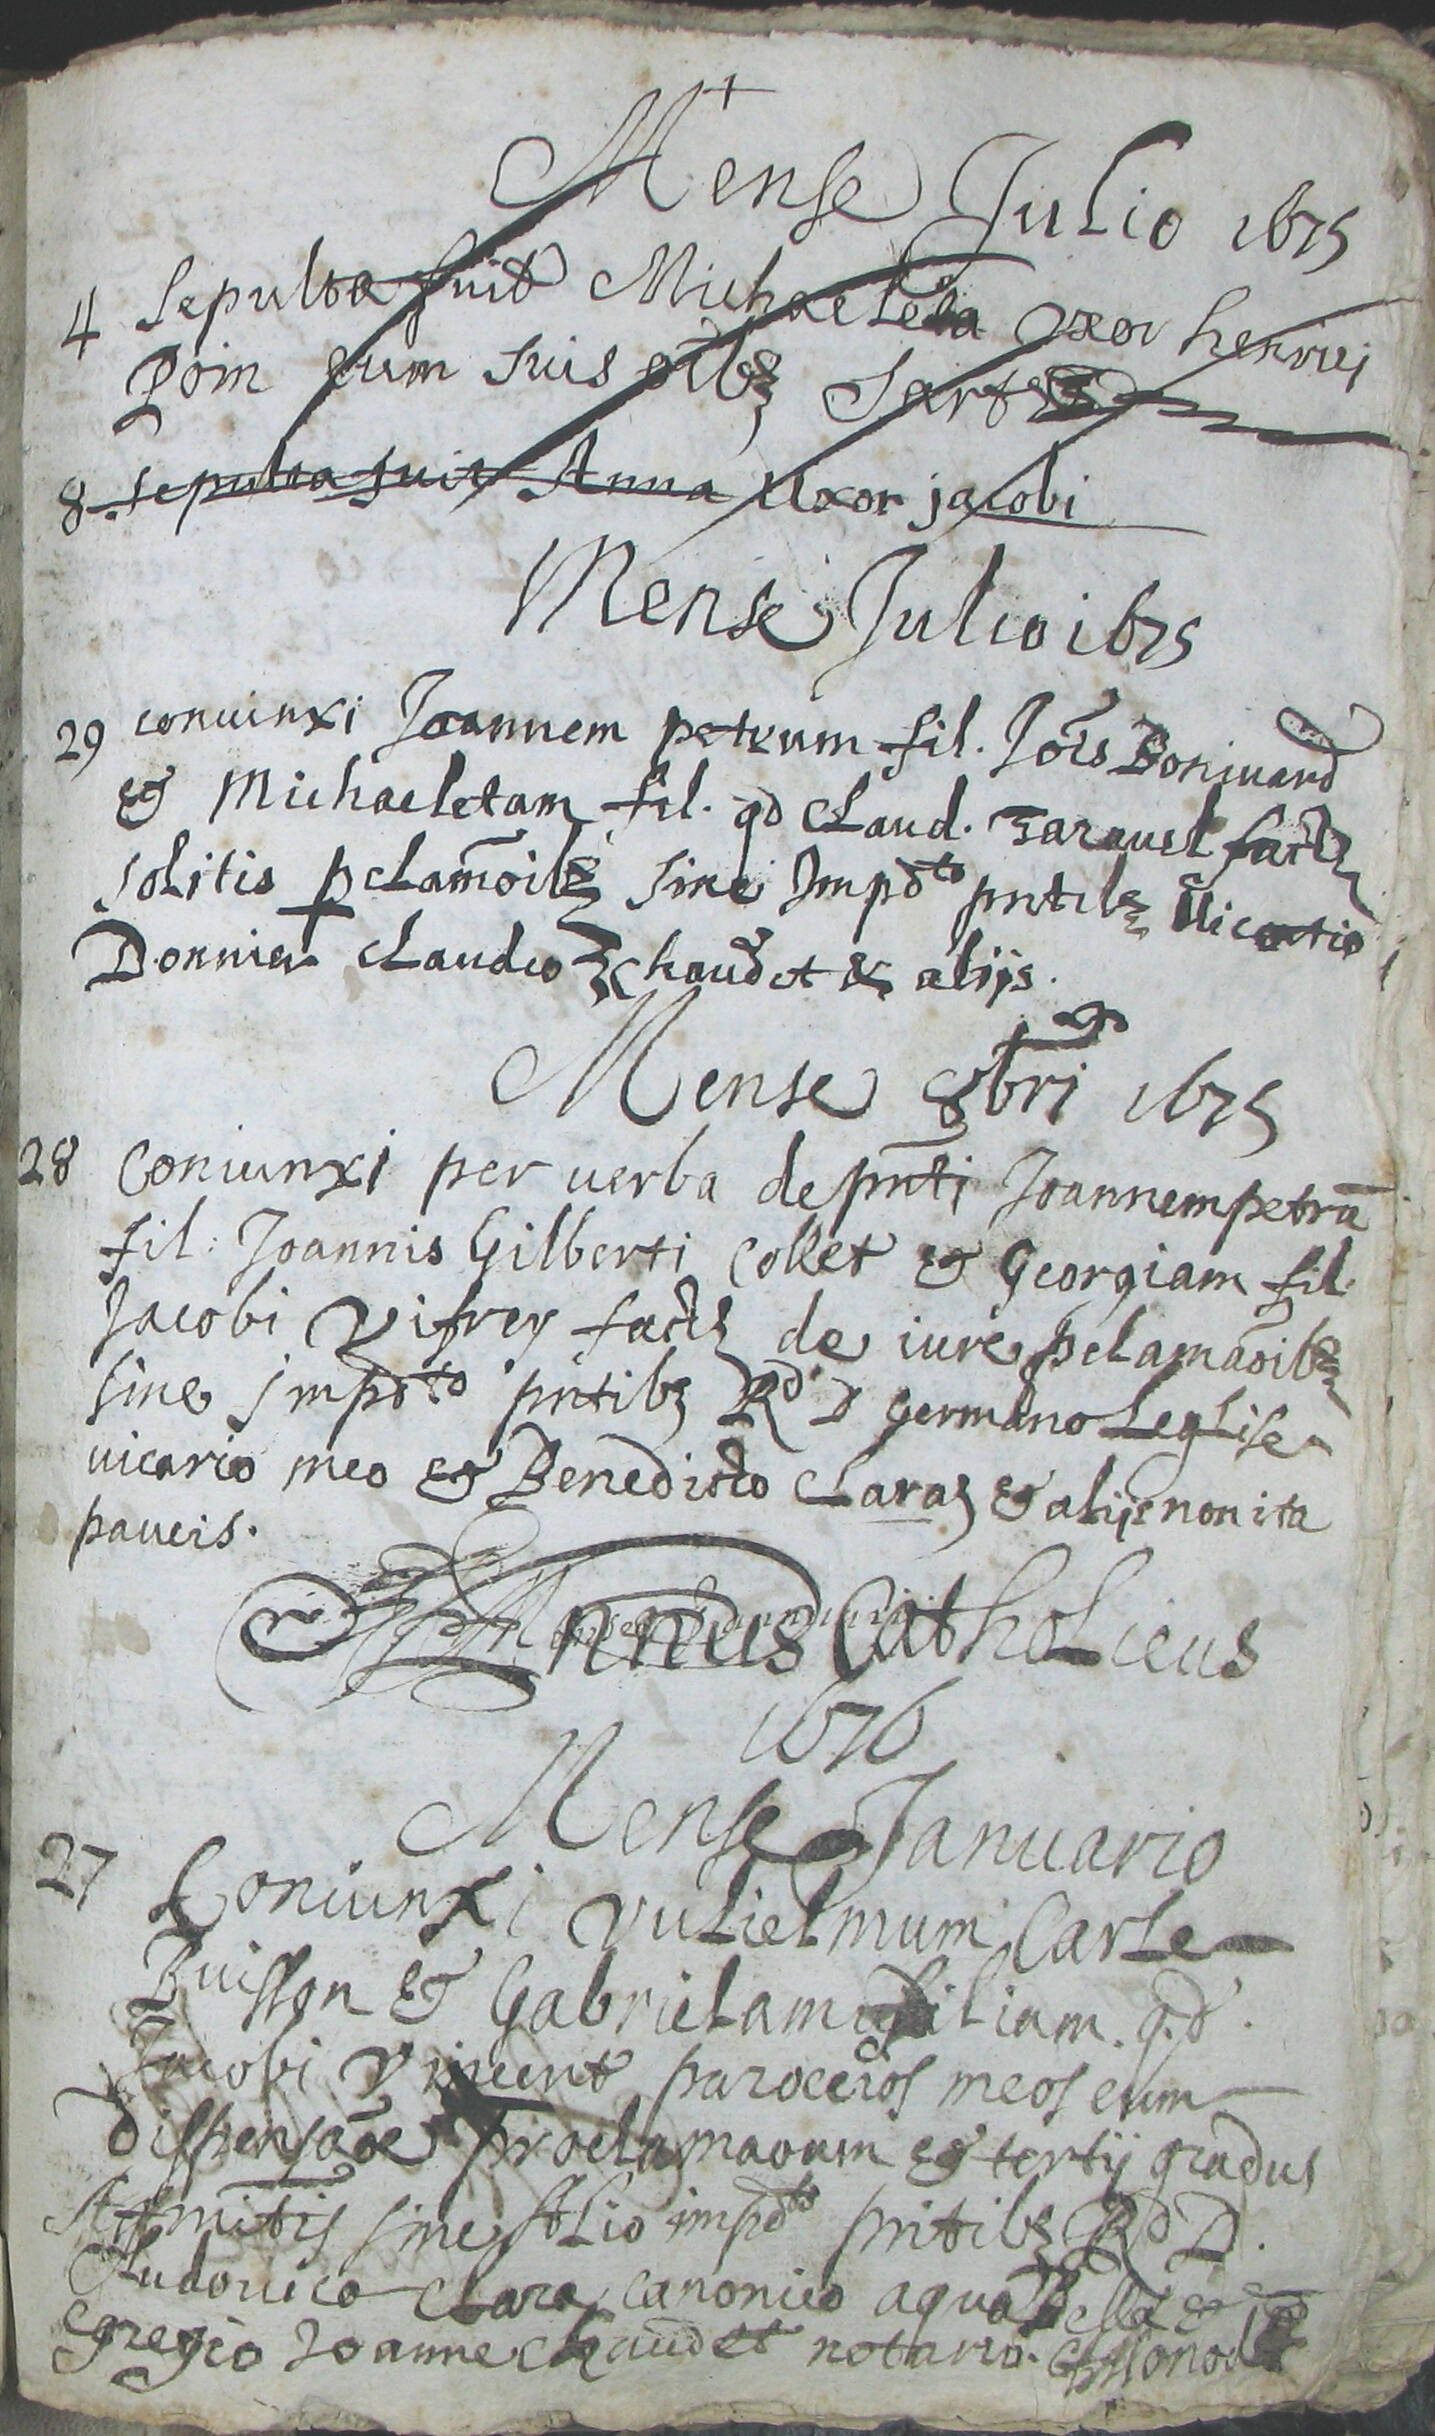 +
Mense Julio 1675
4 Sepulta fuit Michaeleta uxor henrici
Poin cum suis
8 sepulta fuit Anna uxor jacobi
Mense Julio 1675
29 coniunxi Joannem petrum fil. Jois Boniuard
& Michaeletam fil. qd Claud. Tarauel factis
solitis pclamoibz sine Impdto pntibz
Donnier Claudio Chaudet & alijs.
Mense 8bri 1675
28 Coniunxi per uerba de pnti Joannempetrū
fil: Joannis Gilberti Collet & Georgiam fil.
Jacobi Vifrey factis de iure pclamaoibz
sine Impdto pntibz Rd D Germano Leglise
uicario meo & Benedicto Claraz & alijs non ita
paucis.
Annus Catholicus
1676
Mense Januario
27 Coniunxi Vulielmum Carle
Buisson & Gabrielam filiam. q.d.
Jacobi Vincent parocciós meos cum
dispensaōe proclamaoum & tertij gradus
sine Alio impdto pntibz Rd D.
Ludouico Clara canonico aquaBellæ &
Egregio Joanne Chaudet notario.